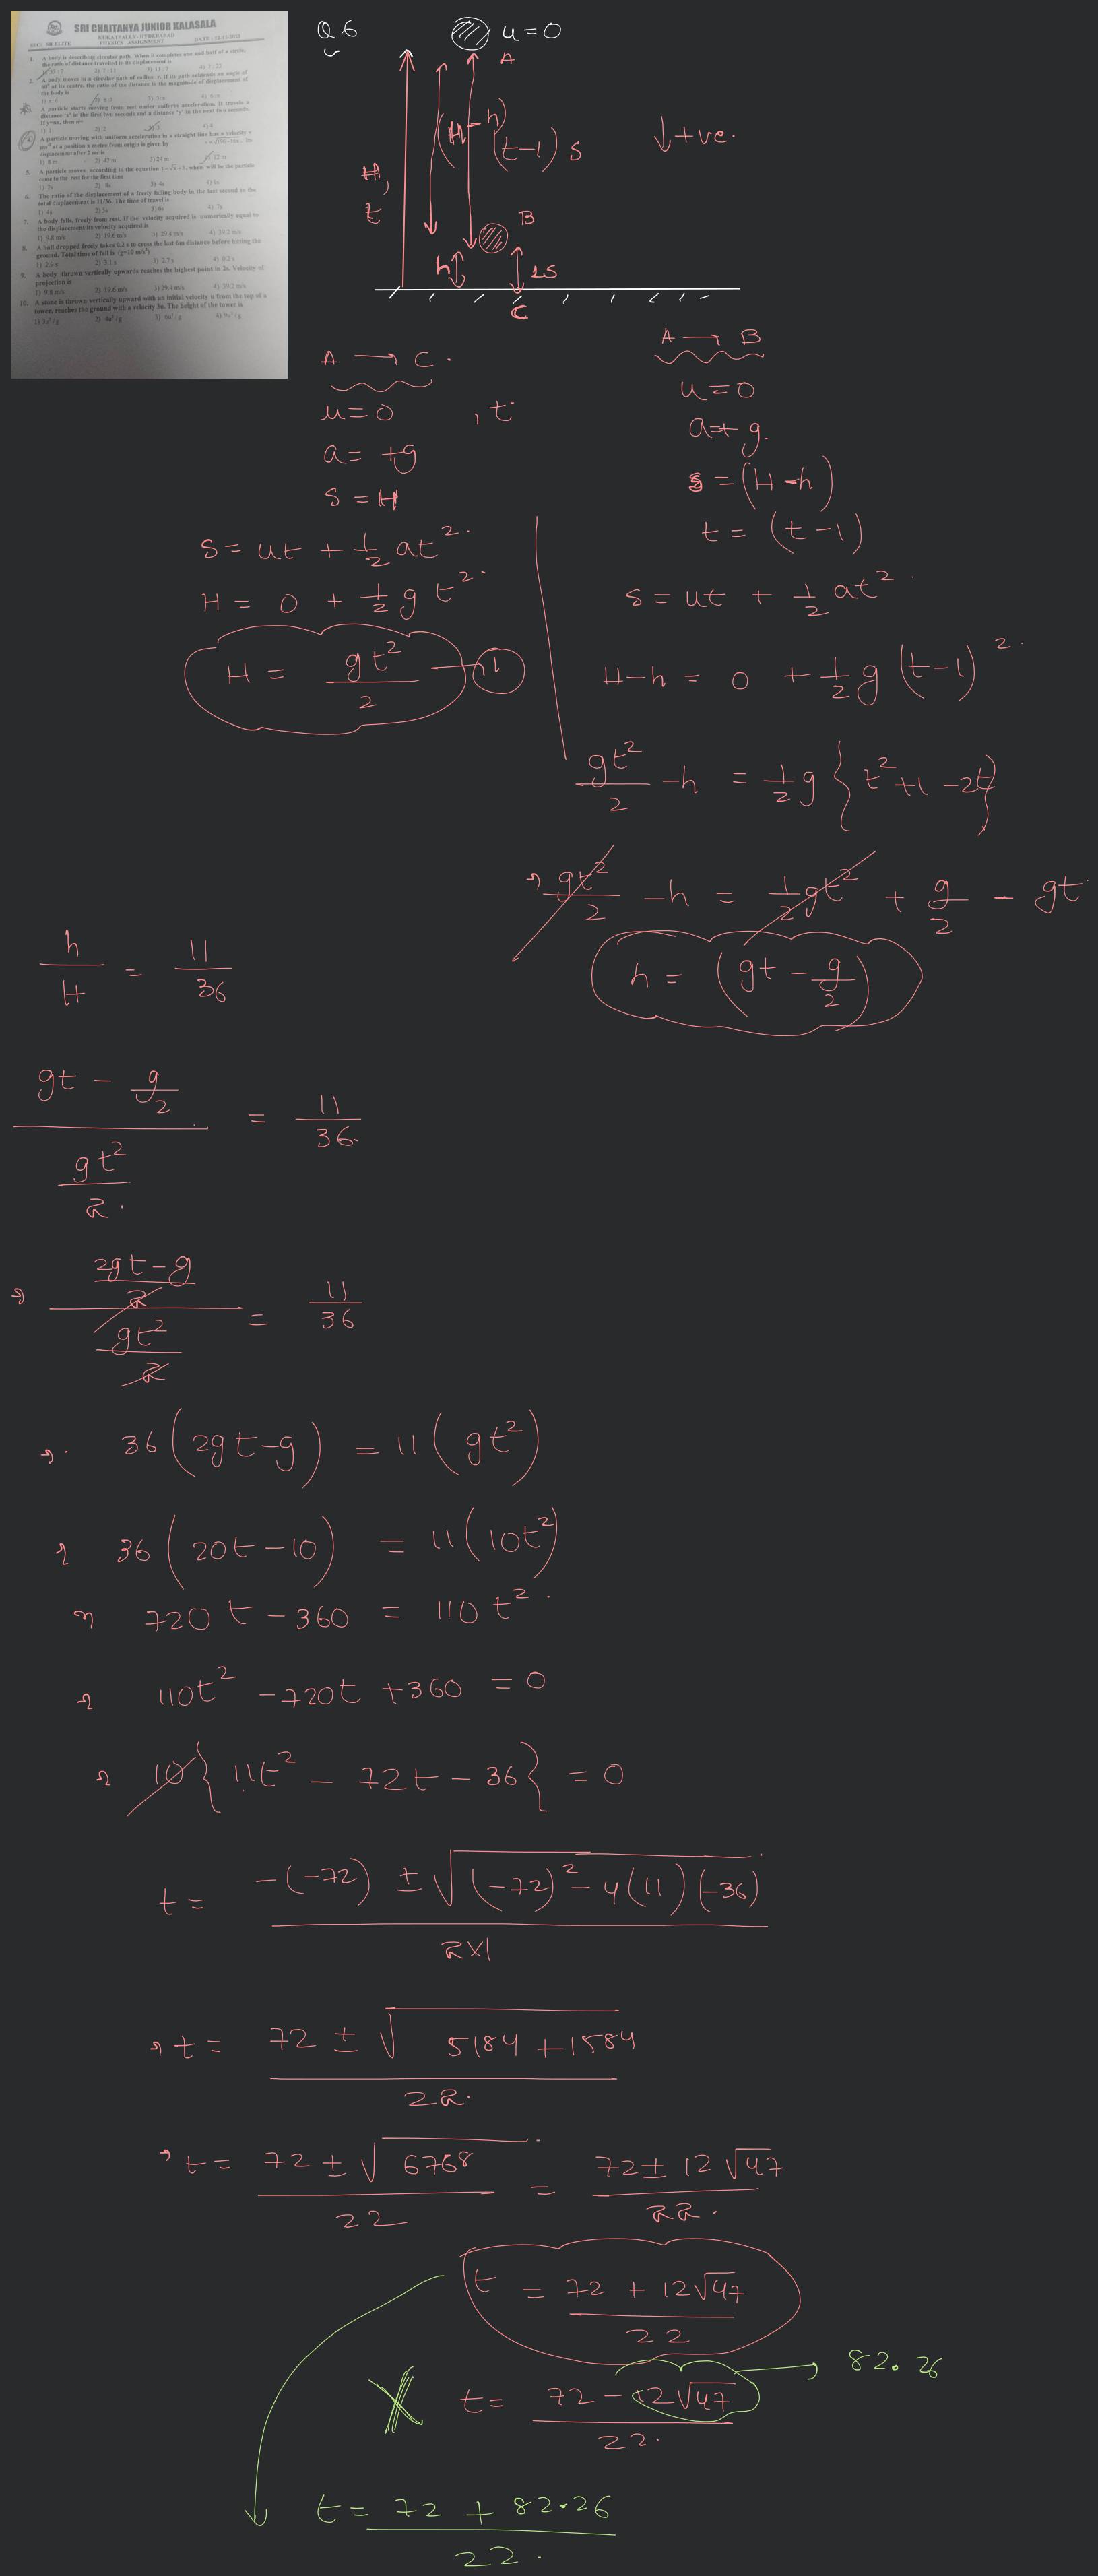 SRI CHAITANYA JUNIOR KALASALA
KUKATPALLY, HYDERABAD
SEC: SR ELITE PHYSICS ASSIGNMENT DATE : 12-11-2022
1. A body is describing circular path. When it completes one and half of a circle,
the ratio of distance travelled to its displacement is
2) 7 : 11 3) 11 : 7 4) 7 : 22
2. A body moves in a circular path of radius r. If its path subtends an angle of
60° at its centre, the ratio of the distance to the magnitude of displacement of
the body is
A particle starts moving from rest under uniform acceleration. It travels a
distance 'x' in the first two seconds and a distance 'y' in the next two seconds.
If y=nx, then n=
1) 1 2) 2 3) 3 4) 4
A particle moving with uniform acceleration in a straight line has a velocity v
displacement after 2 sec is
1) 8 m 2) 42 m 3) 24 m 4) 12 m
5. A particle moves according to the equation t = √x + 3, when will be the particle
come to the rest for the first time
1) 3s
6. The ratio of the displacement of a freely falling body in the last second to the
total displacement is 11/36. The time of travel is
1) 4s 2) 5s 3) 6s 4) 7s
7. A body falls, freely from rest, If the velocity acquired is numerically equal to
the displacement its velocity acquired is
1) 9.8 m/s 2) 19.6 m/s 3) 29.4 m/s 4) 39.2 m/s
8. A ball dropped freely takes 0.2 s to cross the last 6m distance before hitting the
ground. Total time of fall is (g=10 m/s²)
1) 2.9 s 2) 3.1 s 3) 2.7 s 4) 0.2 s
9. A body thrown vertically upwards reaches the highest point in 2s. Velocity of
projection is
1) 9.8 m/s 2) 19.6 m/s 3) 29.4 m/s 4) 39.2 m/s
10. A stone is thrown vertically upward with an initial velocity u from the top of a
tower, reaches the ground with a velocity 3u. The height of the tower is
1) 3u²/g 2) 4u²/g 3) 6u²/g 4) 9u²/g
Q 6
u=0
A
(H-h)
(t-1) s
↓+ve.
H,
t
B
h
1s
C
A → C.
u=0 , t
a= +g
S = H
S= ut + 1/2 at².
H = 0 + 1/2 g t².
H = gt²/2 — 1
A → B
u=0
a=+g.
s = (H-h)
t = (t-1)
S = ut + 1/2 at².
H-h = 0 + 1/2 g (t-1)².
gt²/2 - h = 1/2 g {t²+1-2t}
gt²/2 - h = 1/2 gt² + g/2 - gt
h = (gt - g/2)
h/H = 11/36
(gt - g/2)/(gt²/2) = 11/36
((2gt-g)/2)/(gt²/2) = 11/36
36(2gt-g) = 11(gt²)
36(20t-10) = 11(10t²)
720t-360 = 110t².
110t² -720t +360 =0
10{11t² - 72t - 36} = 0
t = (-(-72) ± √((-72)² - 4(11)(-36)))/(2×1)
t = (72 ± √(5184+1584))/22.
t = (72 ± √6768)/22 = (72± 12√47)/22.
t = (72 + 12√47)/22
t = (72 - 12√47)/22. → 82.26
X
t = (72 + 82.26)/22.